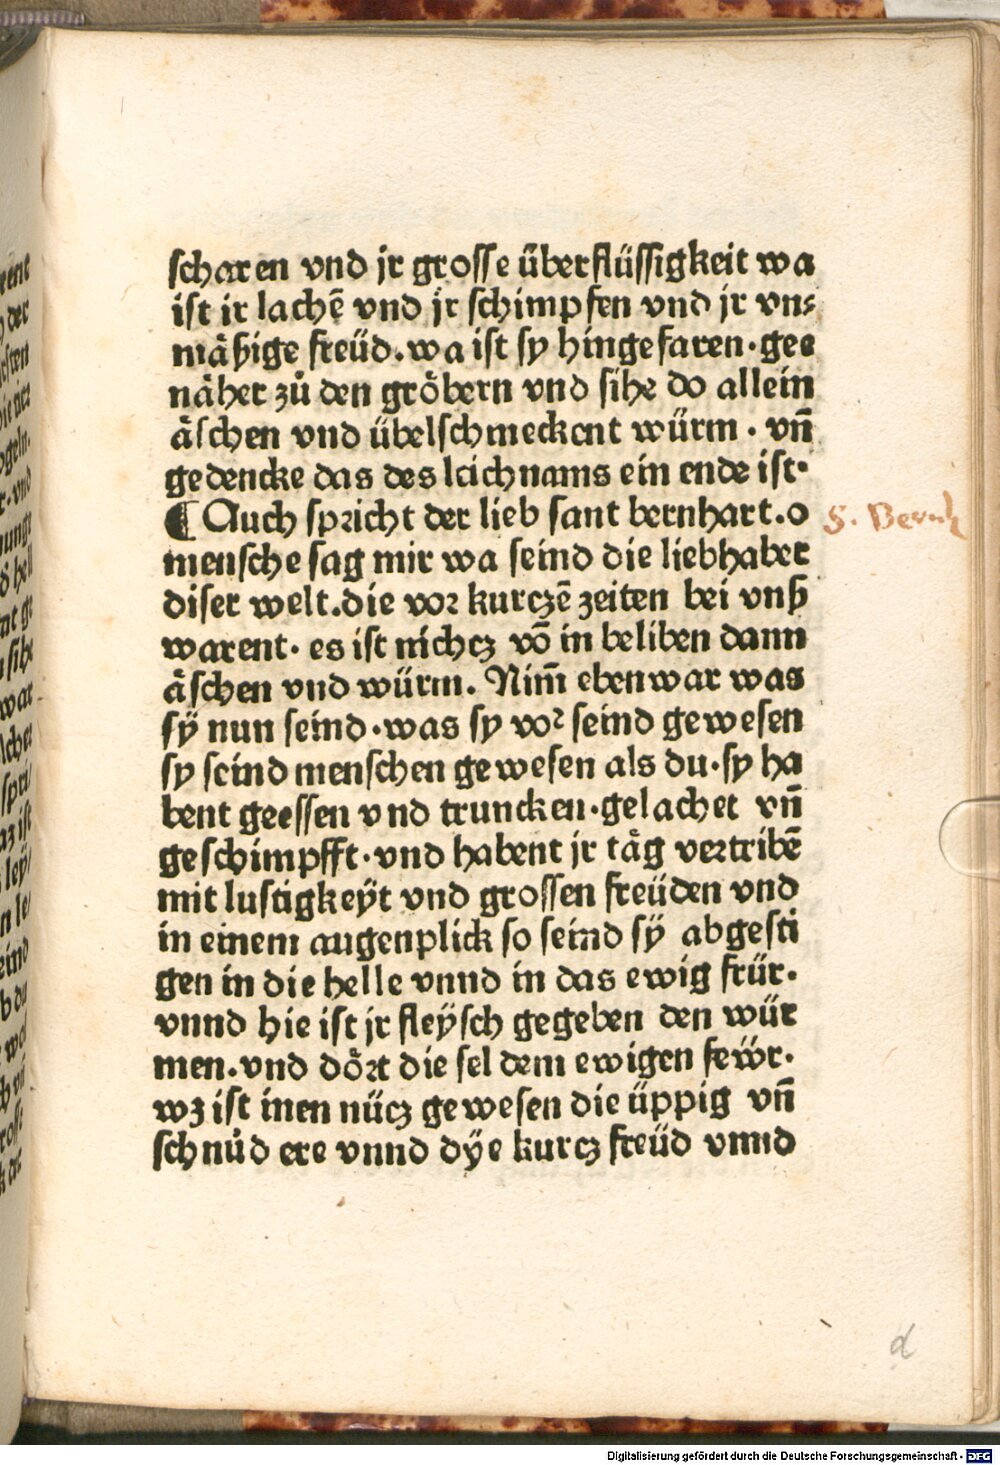 scharen vnd jr grosse überflüssigkeit wa
ist ir lachē vnd jr schimpfen vnd jr vn⸗
mäßige freüd.wa ist sy hingefaren.gee
näher zů den gröbern vnd sihe do allein
äschen vnd übelschmeckent würm . vn̄
gedencke das des leichnams ein ende ist.
¶ Auch spricht der lieb sant bernhart.o
S. Bernh
mensche sag mir wa seind die liebhaber
diser welt.die vor kurczē zeiten bei vnß
warent. es ist nichcz vō in beliben dann
äschen vnd würm. Nim̄ eben war was
sÿ nun seind.was sy vor seind gewesen
sy seind menschen gewesen als du.sy ha
bent geessen vnd truncken.gelachet vn̄
geschimpfft.vnd habent jr täg vertribē
mit lustigkeÿt vnd grossen freüden vnd
in einem augenplick so seind sÿ abgesti
gen in die helle vnnd in das ewig frür.
vnnd hie ist jr fleÿsch gegeben den wür
men.vnd dört die sel dem ewigen fewr.
wz ist inen nücz gewesen die üppig vn̄
schnůd ere vnnd dÿe kurcz freüd vnnd
d
Digitalisierung gefördert durch die Deutsche Forschungsgemeinschaft - DFG